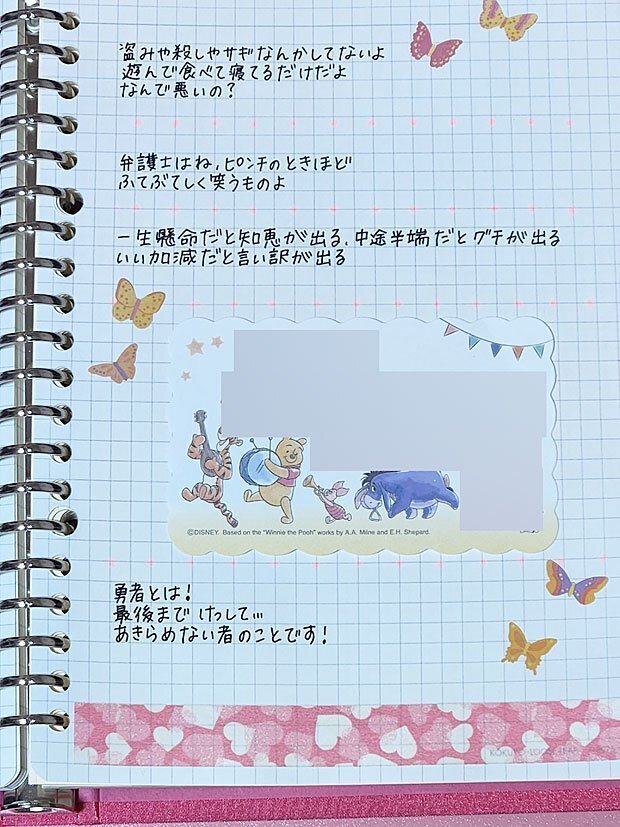 盗みや殺しやサギなんかしてないよ
遊んで食べて寝てるだけだよ
なんで悪いの？
弁護士はね、ピンチのときほど
ふてぶてしく笑うものよ
一生懸命だと知恵が出る、中途半端だとグチが出る
いい加減だと言い訳が出る
©DISNEY. Based on the "Winnie the Pooh" works by A.A. Milne and E.H. Shepard.
勇者とは！
最後まで けっして…
あきらめない者のことです！